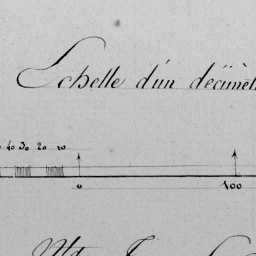 Echelle d'un décimèt
40 30 20 10
0 100